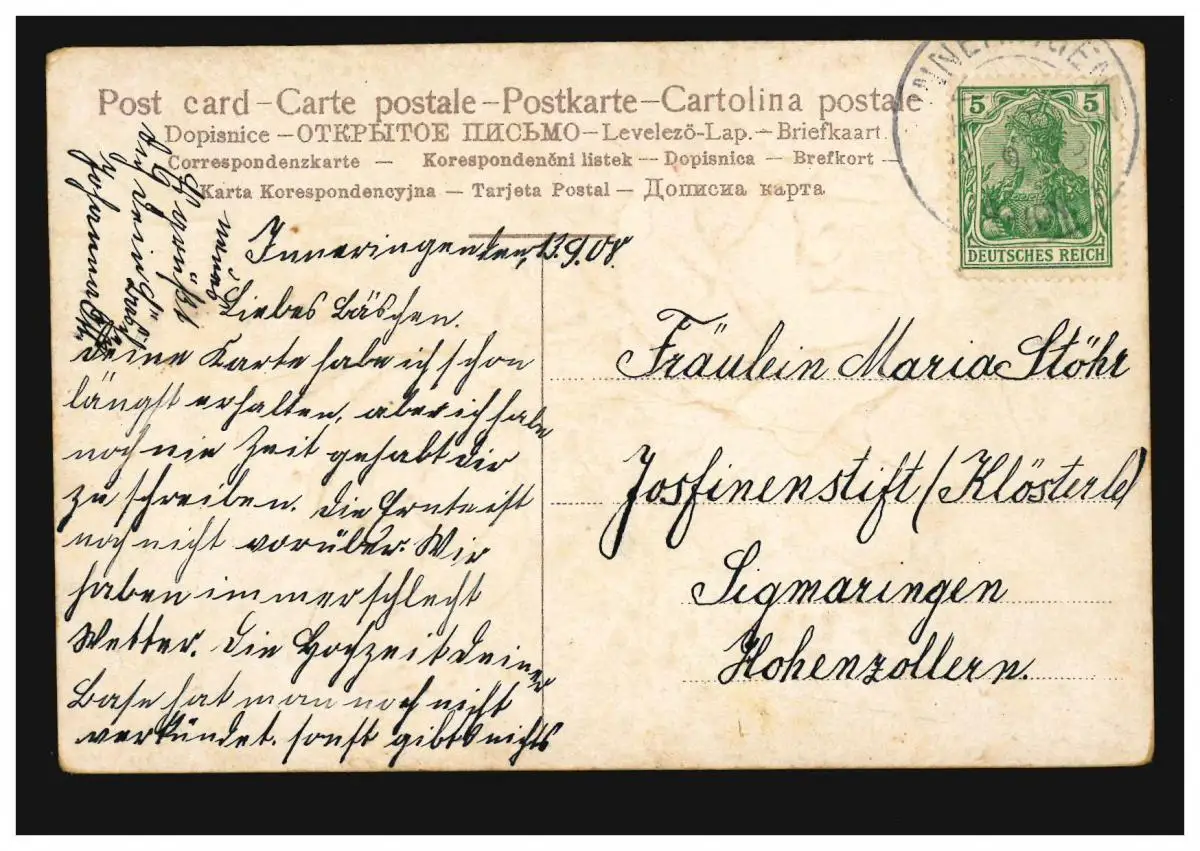 Post card – Carte postale – Postkarte – Cartolina postale
Dopisnice – ОТКРЫТОЕ ПИСЬМО – Levelezö-Lap. – Briefkaart
Correspondenzkarte – Korespondenčni listek – Dopisnica – Brefkort –
Karta Korespondencyjna – Tarjeta Postal – Дописна карта
INNERINGEN
5 5
DEUTSCHES REICH
Inneringen, den 13.9.08
Liebes Bäschen.
deine Karte habe ich schon
längst erhalten, aber ich habe
noch nie Zeit gehabt dir
zu schreiben. die Ernte ist
noch nicht vorüber. Wir
haben immer schlecht
Wetter. die Hochzeit deiner
Base hat man noch nicht
verkündet. sonst gibts nichts
neues
Es grüßt
dich
Johanna
Fräulein Maria Stöhr
Josfinenstift (Klösterle)
Sigmaringen
Hohenzollern.